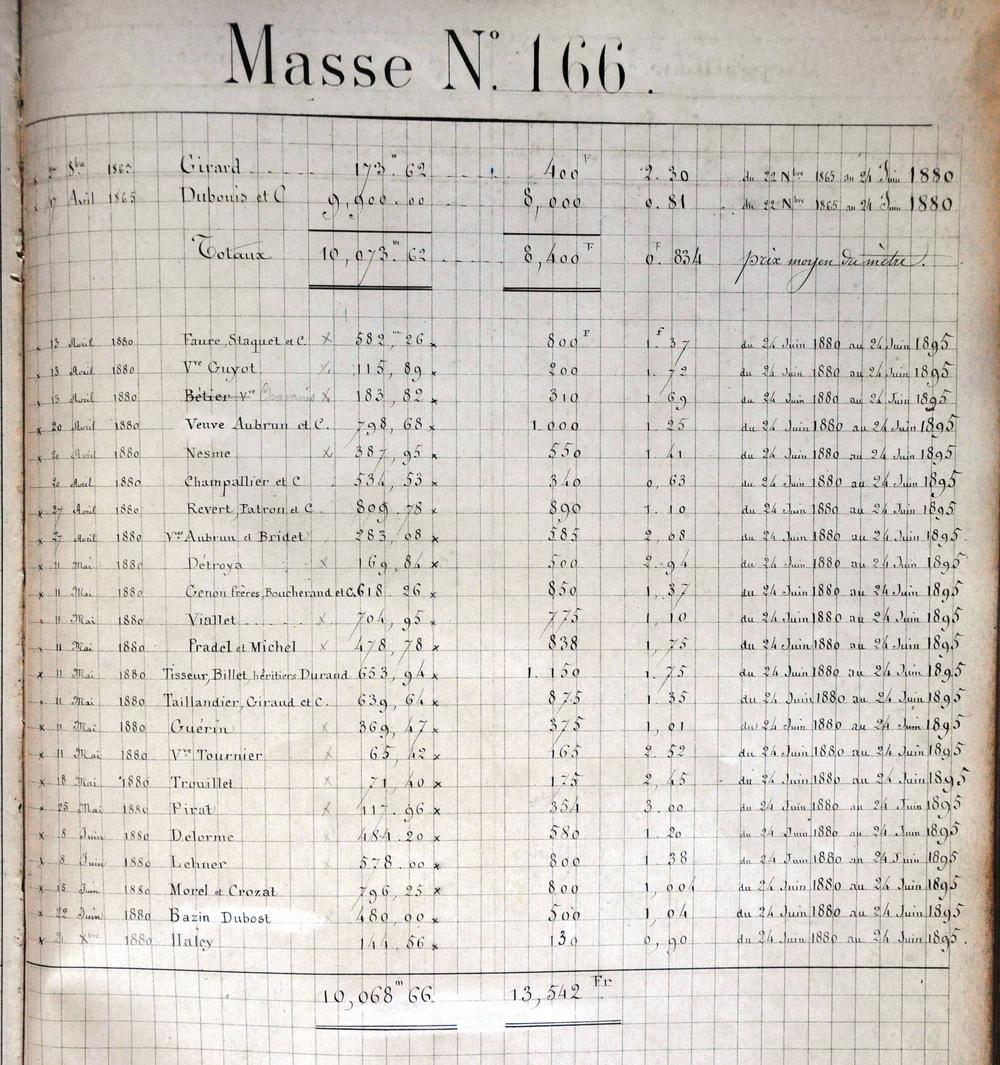 Masse N.° 166.
8bre 1865 Girard 173.m 62 400 F 2.30 du 22 Nbre 1865 au 24 Juin 1880
Avril 1865 Dubouis et C 9,900.00 8,000 0.81 du 22 Nbre 1865 au 24 Juin 1880
Totaux 10,073.m 62 8,400 F 0.F 834 prix moyen du mètre.
x 13 Avril 1880 Faure, Staquet et C. x 582,m 26 x 800 F 1.F 37 du 24 Juin 1880 au 24 Juin 1895
x 13 Avril 1880 Vve Guyot x 115, 89 x 200 1. 72 du 24 Juin 1880 au 24 Juin 1895
x 13 Avril 1880 Bétier Vve x 183, 82 x 310 1, 69 du 24 Juin 1880 au 24 Juin 1895
x 20 Avril 1880 Veuve Aubrun et C. 798, 68 x 1.000 1. 25 du 24 Juin 1880 au 24 Juin 1895
x 20 Avril 1880 Nesme x 387, 95 x 550 1. 41 du 24 Juin 1880 au 24 Juin 1895
x 20 Avril 1880 Champallier et C 534, 53 x 340 0, 63 du 24 Juin 1880 au 24 Juin 1895
x 27 Avril 1880 Revert, Patron et C. 809. 78 x 890 1. 10 du 24 Juin 1880 au 24 Juin 1895
x 27 Avril 1880 Vve Aubrun et Bridet 283, 08 x 585 2, 08 du 24 Juin 1880 au 24 Juin 1895
x 11 Mai 1880 Détroya x 169, 84 x 500 2. 94 du 24 Juin 1880 au 24 Juin 1895
x 11 Mai 1880 Genon frères, Boucherand et C. 618, 26 x 850 1, 37 du 24 Juin 1880 au 24 Juin 1895
x 11 Mai 1880 Viallet x 704, 95 x 775 1, 10 du 24 Juin 1880 au 24 Juin 1895
x 11 Mai 1880 Pradel et Michel x 478, 78 x 838 1, 75 du 24 Juin 1880 au 24 Juin 1895
x 11 Mai 1880 Tisseur, Billet, héritiers Durand 653, 94 x 1.150 1. 75 du 24 Juin 1880 au 24 Juin 1895
x 11 Mai 1880 Taillandier, Giraud et C. 639, 64 x 875 1. 35 du 24 Juin 1880 au 24 Juin 1895
x 11 Mai 1880 Guérin x 369, 47 x 375 1, 01 du 24 Juin 1880 au 24 Juin 1895
x 11 Mai 1880 Vve Tournier x 65, 42 x 165 2. 52 du 24 Juin 1880 au 24 Juin 1895
x 18 Mai 1880 Trouillet x 71, 40 x 175 2, 45 du 24 Juin 1880 au 24 Juin 1895
x 25 Mai 1880 Pirat x 117. 96 x 354 3. 00 du 24 Juin 1880 au 24 Juin 1895
x 8 Juin 1880 Delorme x 484.20 x 580 1. 20 du 24 Juin 1880 au 24 Juin 1895
x 8 Juin 1880 Lehner x 578.00 x 800 1. 38 du 24 Juin 1880 au 24 Juin 1895
x 15 Juin 1880 Morel et Crozat 796, 25 x 800 1, 004 du 24 Juin 1880 au 24 Juin 1895
x 22 Juin 1880 Bazin Dubost x 480, 00 x 500 1, 04 du 24 Juin 1880 au 24 Juin 1895
x 21 Xbre 1880 Haley x 144, 56 x 130 0, 90 du 24 Juin 1880 au 24 Juin 1895.
10,068 m 66. 13,542 Fr.